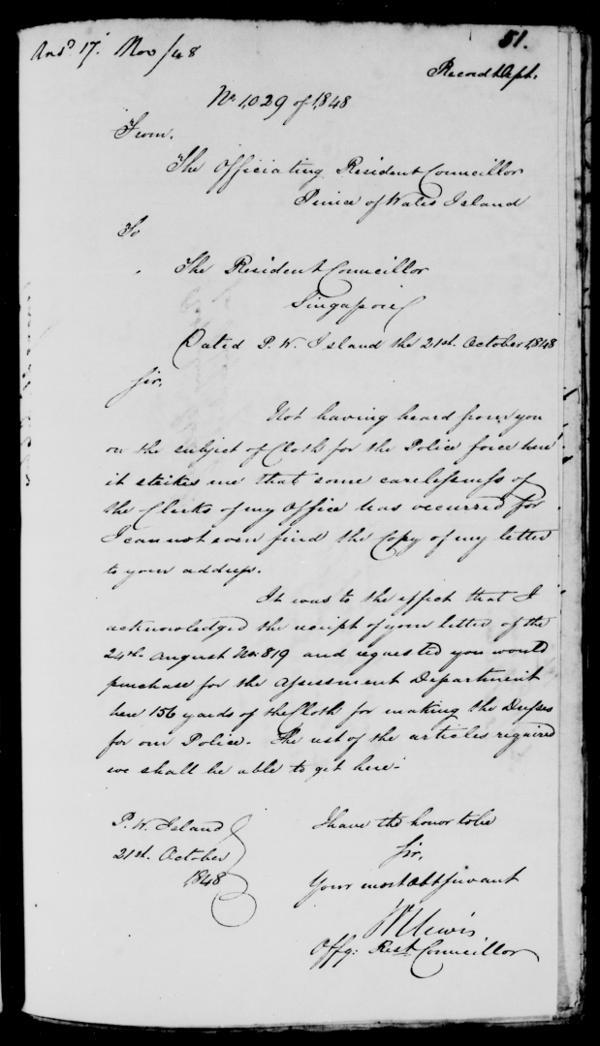 Ansd. 17. Nov/48
51.
Record Dept.
No. 1,029 of 1,848
From,
The Officiating Resident Councillor
Prince of Wales Island
To
The Resident Councillor
Singapore
Dated P. W. Island the 21st. October 1,848
Sir,
Not having heard from you
on the subject of Cloth for the Police force here
it strikes me that some carelessness of
the Clerks of my Office has occurred for
I can not even find the Copy of my letter
to your address.
It was to the effect that I
acknowledged the receipt of your letter of the
24th. August No. 819 and requested you would
purchase for the Assessment Department
here 156 yards of the Cloth for making the Dresses
for our Police. The rest of the articles required
we shall be able to get here.
P. W. Island
21st. October
1,848
I have the honor to be
Sir,
Your most obt servant
W Lewis
Offg: Rest. Councillor